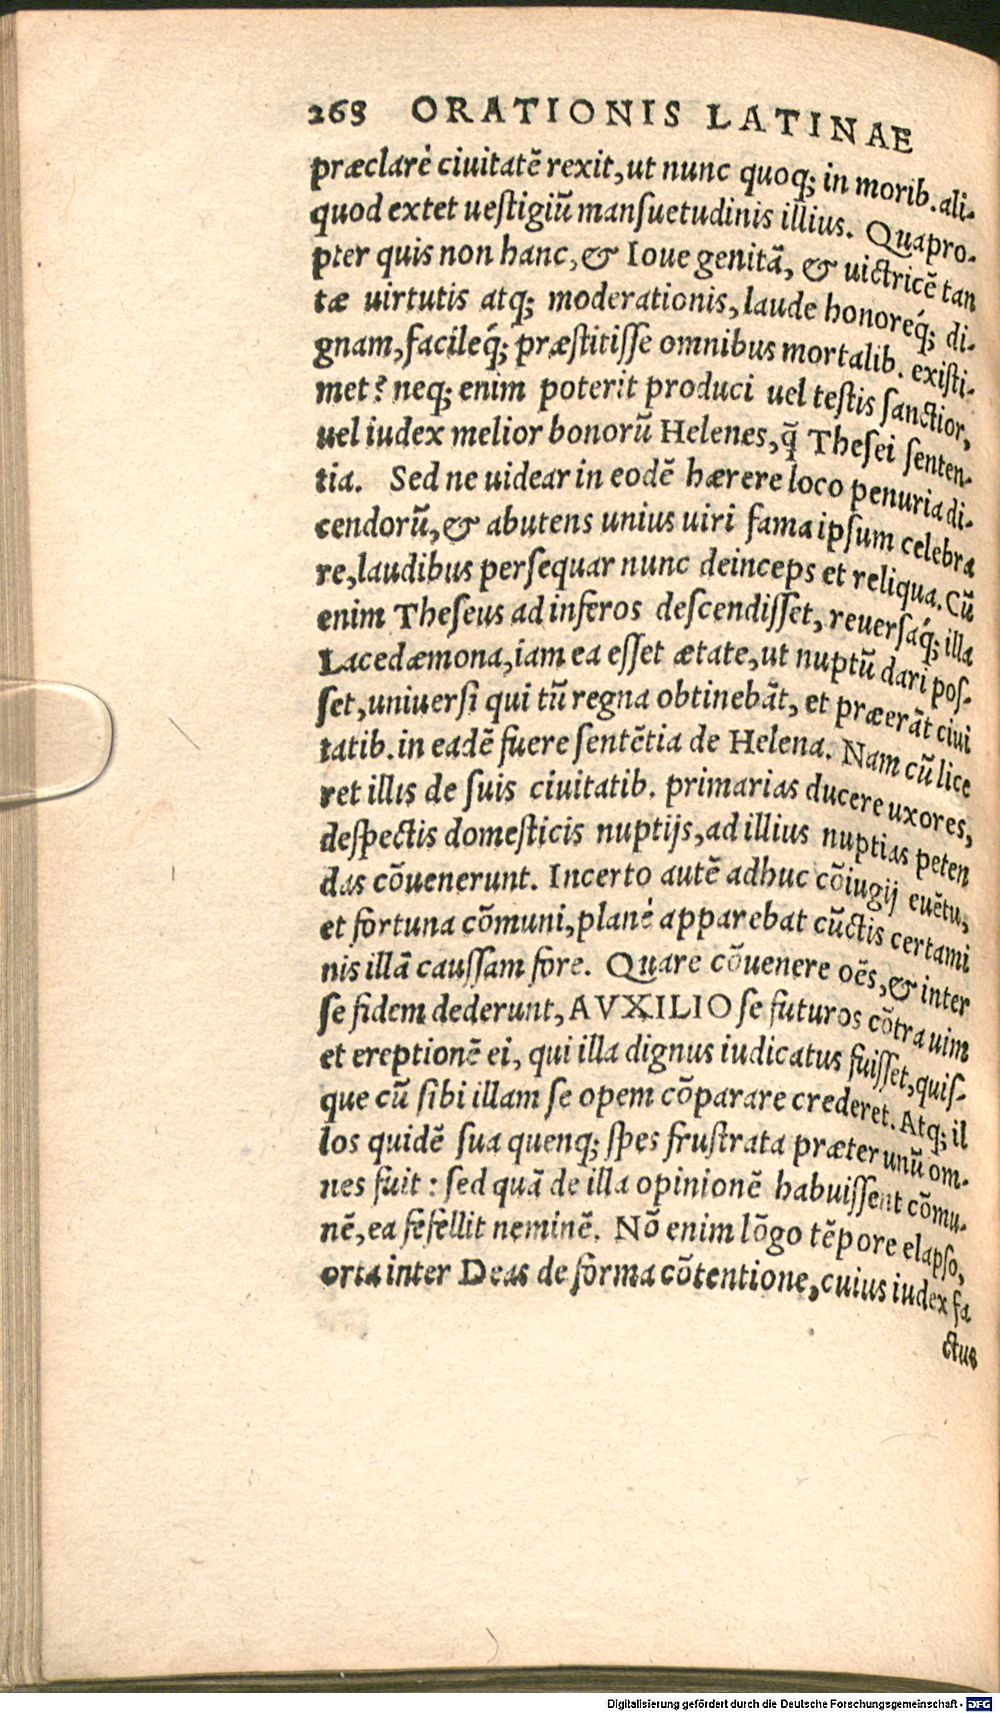 268 ORATIONIS LATINAE
præclarè ciuitatẽ rexit, ut nunc quoq; in morib. ali-
quod extet uestigiũ mansuetudinis illius. Quapro-
pter quis non hanc, & Ioue genitã, & uictricẽ tan
tæ uirtutis atq; moderationis, laude honoreq́; di-
gnam, facileq́; præstitisse omnibus mortalib. existi-
met? neq; enim poterit produci uel testis sanctior,
uel iudex melior bonorũ Helenes, q̃ Thesei senten-
tia. Sed ne uidear in eodẽ hærere loco penuria di-
cendorũ, & abutens unius uiri fama ipsum celebra
re, laudibus persequar nunc deinceps et reliqua. Cũ
enim Theseus ad inferos descendisset, reuersaq́; illa
Lacedæmona, iam ea esset ætate, ut nuptũ dari pos-
set, uniuersi qui tũ regna obtinebãt, et præerãt ciui
tatib. in eadẽ fuere sentẽtia de Helena. Nam cũ lice
ret illis de suis ciuitatib. primarias ducere uxores,
despectis domesticis nuptijs, ad illius nuptias peten
das cõuenerunt. Incerto autẽ adhuc cõiugij euẽtu,
et fortuna cõmuni, planè apparebat cũctis certami
nis illã caussam fore. Quare cõuenere oẽs, & inter
se fidem dederunt, AVXILIO se futuros cõtra uim
et ereptionẽ ei, qui illa dignus iudicatus fuisset, quis-
que cũ sibi illam se opem cõparare crederet. Atq; il
los quidẽ sua quenq; spes frustrata præter unũ om-
nes fuit: sed quã de illa opinionẽ habuissent cõmu-
nẽ, ea fefellit neminẽ. Nõ enim lõgo tẽpore elapso,
orta inter Deas de forma cõtentione, cuius iudex fa
ctus
Digitalisierung gefördert durch die Deutsche Forschungsgemeinschaft - DFG